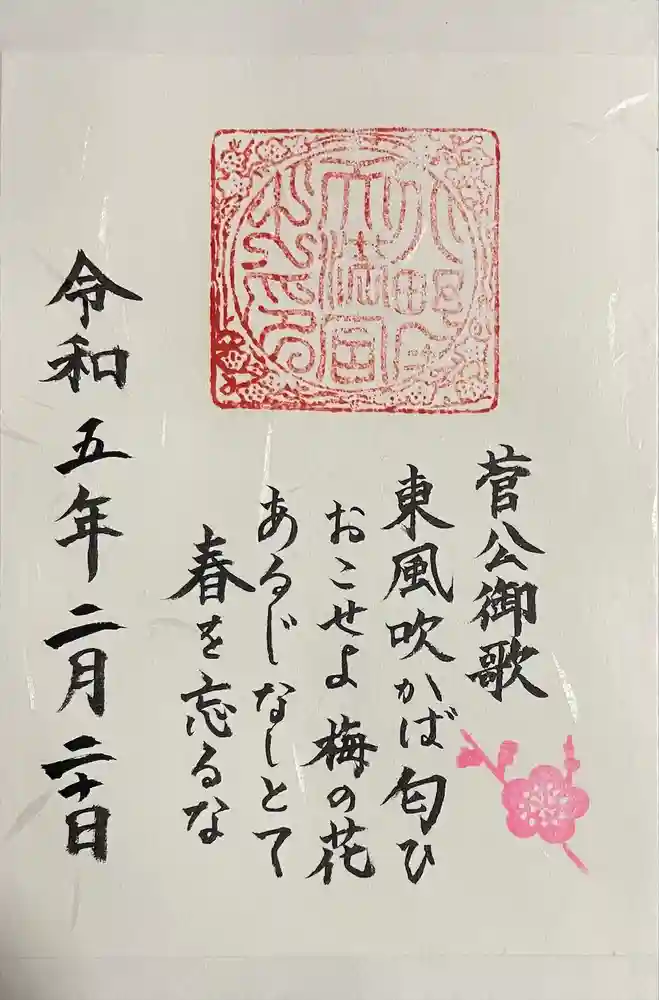 菅公御歌
東風吹かば匂ひ
おこせよ梅の花
あるじなしとて
春を忘るな
令和五年二月二十日